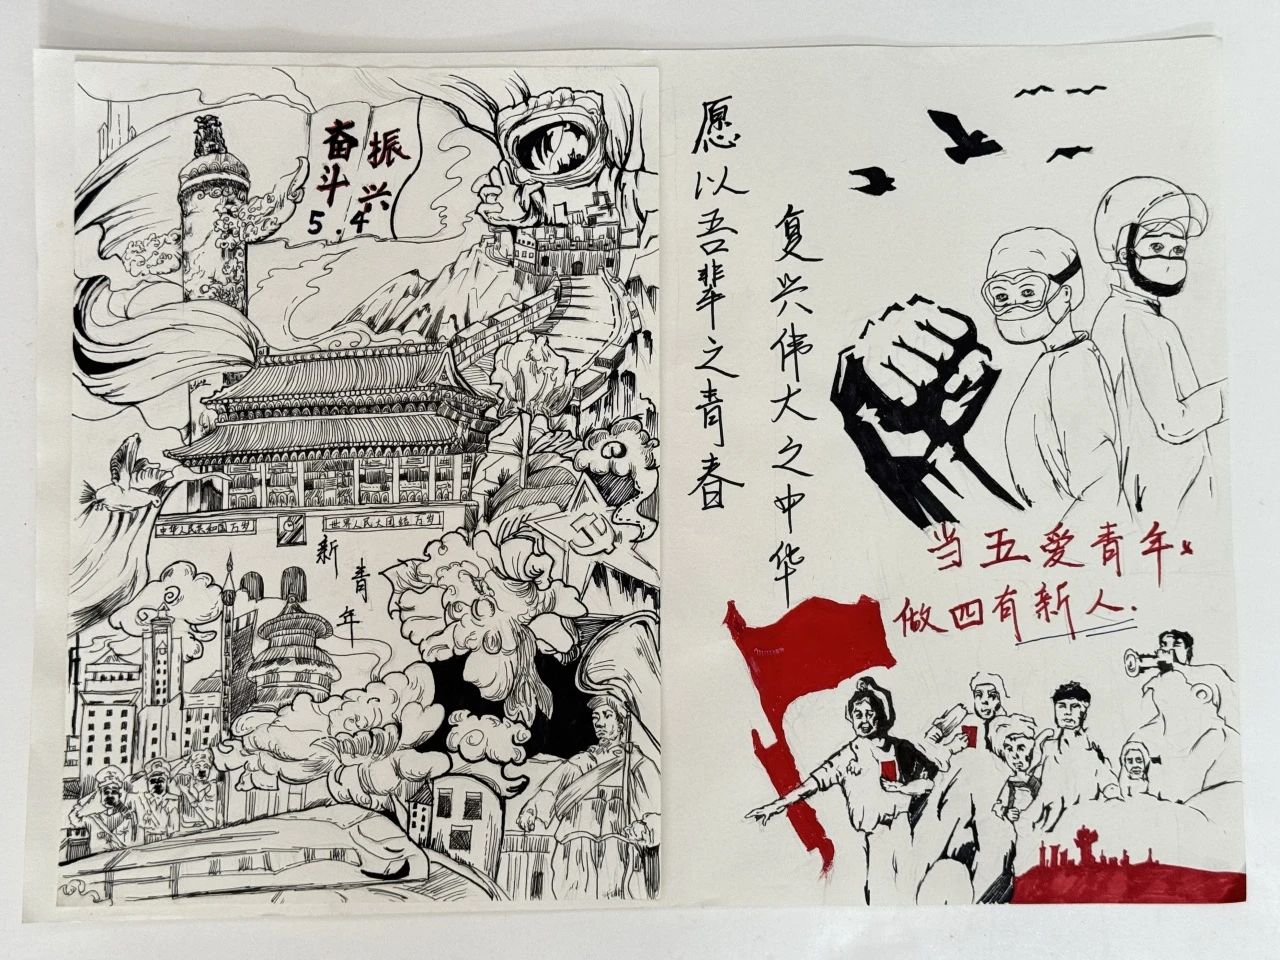 奋斗
振兴
5.4
中华人民共和国万岁
世界人民大团结万岁
新青年
愿以吾辈之青春
复兴伟大之中华
当五爱青年
做四有新人.